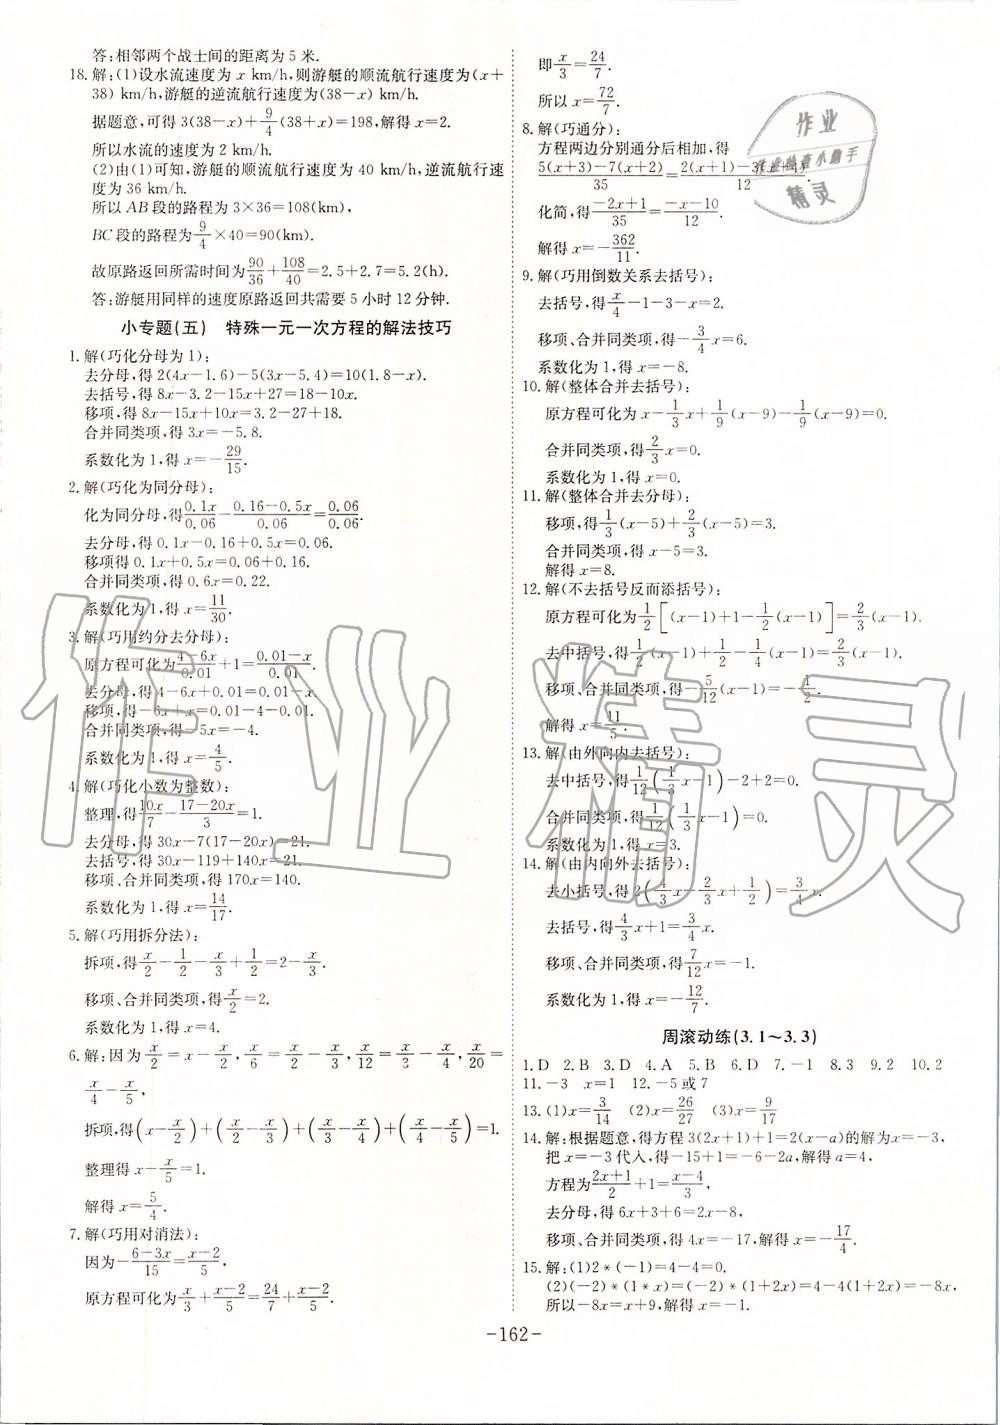 答:相邻两个战士间的距离为 5 米.
18. 解:(1)设水流速度为 x km/h,则游艇的顺流航行速度为(x+
38) km/h,游艇的逆流航行速度为(38-x) km/h.
据题意,可得 3(38-x)+9/4(38+x)=198,解得 x=2.
所以水流的速度为 2 km/h.
(2)由(1)可知,游艇的顺流航行速度为 40 km/h,逆流航行速
度为 36 km/h.
所以 AB 段的路程为 3×36=108(km),
BC 段的路程为9/4×40=90(km).
故原路返回所需时间为90/36+108/40=2.5+2.7=5.2(h).
答:游艇用同样的速度原路返回共需要 5 小时 12 分钟.
小专题(五) 特殊一元一次方程的解法技巧
1. 解(巧化分母为 1):
去分母,得 2(4x-1.6)-5(3x-5.4)=10(1.8-x).
去括号,得 8x-3.2-15x+27=18-10x.
移项,得 8x-15x+10x=3.2-27+18.
合并同类项,得 3x=-5.8.
系数化为 1,得 x=-29/15.
2. 解(巧化为同分母):
化为同分母,得0.1x/0.06-(0.16-0.5x)/0.06=0.06/0.06.
去分母,得 0.1x-0.16+0.5x=0.06.
移项得 0.1x+0.5x=0.06+0.16.
合并同类项,得 0.6x=0.22.
系数化为 1,得 x=11/30.
3. 解(巧用约分去分母):
原方程可化为(4-6x)/0.01+1=(0.01-x)/0.01.
去分母,得 4-6x+0.01=0.01-x.
移项,得-6x+x=0.01-4-0.01.
合并同类项,得-5x=-4.
系数化为 1,得 x=4/5.
4. 解(巧化小数为整数):
整理,得10x/7-(17-20x)/3=1.
去分母,得 30x-7(17-20x)=21.
去括号,得 30x-119+140x=21.
移项、合并同类项,得 170x=140.
系数化为 1,得 x=14/17.
5. 解(巧用拆分法):
拆项,得x/2-1/2-x/3+1/2=2-x/3.
移项、合并同类项,得x/2=2.
系数化为 1,得 x=4.
6. 解:因为x/2=x-x/2,x/6=x/2-x/3,x/12=x/3-x/4,x/20=
x/4-x/5,
拆项,得(x-x/2)+(x/2-x/3)+(x/3-x/4)+(x/4-x/5)=1.
整理得 x-x/5=1.
解得 x=5/4.
7. 解(巧用对消法):
因为-(6-3x)/15=(x-2)/5,
原方程可化为x/3+(x-2)/5=24/7+(x-2)/5.
即x/3=24/7.
所以 x=72/7.
8. 解(巧通分):
方程两边分别通分后相加,得
(5(x+3)-7(x+2))/35=(2(x+1)-3(x+4))/12.
化简,得(-2x+1)/35=(-x-10)/12.
解得 x=-362/11.
9. 解(巧用倒数关系去括号):
去括号,得x/4-1-3-x=2.
移项、合并同类项,得-3/4x=6.
系数化为 1,得 x=-8.
10. 解(整体合并去括号):
原方程可化为 x-1/3x+1/9(x-9)-1/9(x-9)=0.
合并同类项,得2/3x=0.
系数化为 1,得 x=0.
11. 解(整体合并去分母):
移项,得1/3(x-5)+2/3(x-5)=3.
合并同类项,得 x-5=3.
解得 x=8.
12. 解(不去括号反而添括号):
原方程可化为1/2[(x-1)+1-1/2(x-1)]=2/3(x-1).
去中括号,得1/2(x-1)+1/2-1/4(x-1)=2/3(x-1).
移项、合并同类项,得-5/12(x-1)=-1/2.
解得 x=11/5.
13. 解(由外向内去括号):
去中括号,得1/12(1/3x-1)-2+2=0.
合并同类项,得1/12(1/3x-1)=0.
解得 x=3.
14. 解(由内向外去括号):
去小括号,得 2(4/3x-2/3x+1/2)=3/4x.
去括号,得4/3x+1=3/4x.
移项、合并同类项,得7/12x=-1.
系数化为 1,得 x=-12/7.
周滚动练(3.1～3.3)
1. D 2. B 3. D 4. A 5. B 6. D 7. -1 8. 3 9. 2 10. 2
11. -3 x=1 12. -5 或 7
13. (1)x=3/14 (2)x=26/27 (3)x=9/17
14. 解:根据题意,得方程 3(2x+1)+1=2(x-a)的解为x=-3,
把 x=-3 代入,得-15+1=-6-2a,解得 a=4,
方程为(2x+1)/2+1=(x-4)/3,
去分母,得 6x+3+6=2x-8,
移项、合并同类项,得 4x=-17,解得 x=-17/4.
15. 解:(1)2*(-1)=4-4=0.
(2)(-2)*(1*x)=(-2)*(1+2x)=4-4(1+2x)=-8x,
所以-8x=x+9,解得 x=-1.
-162-
作业
作业检查小助手
精灵
作业精灵